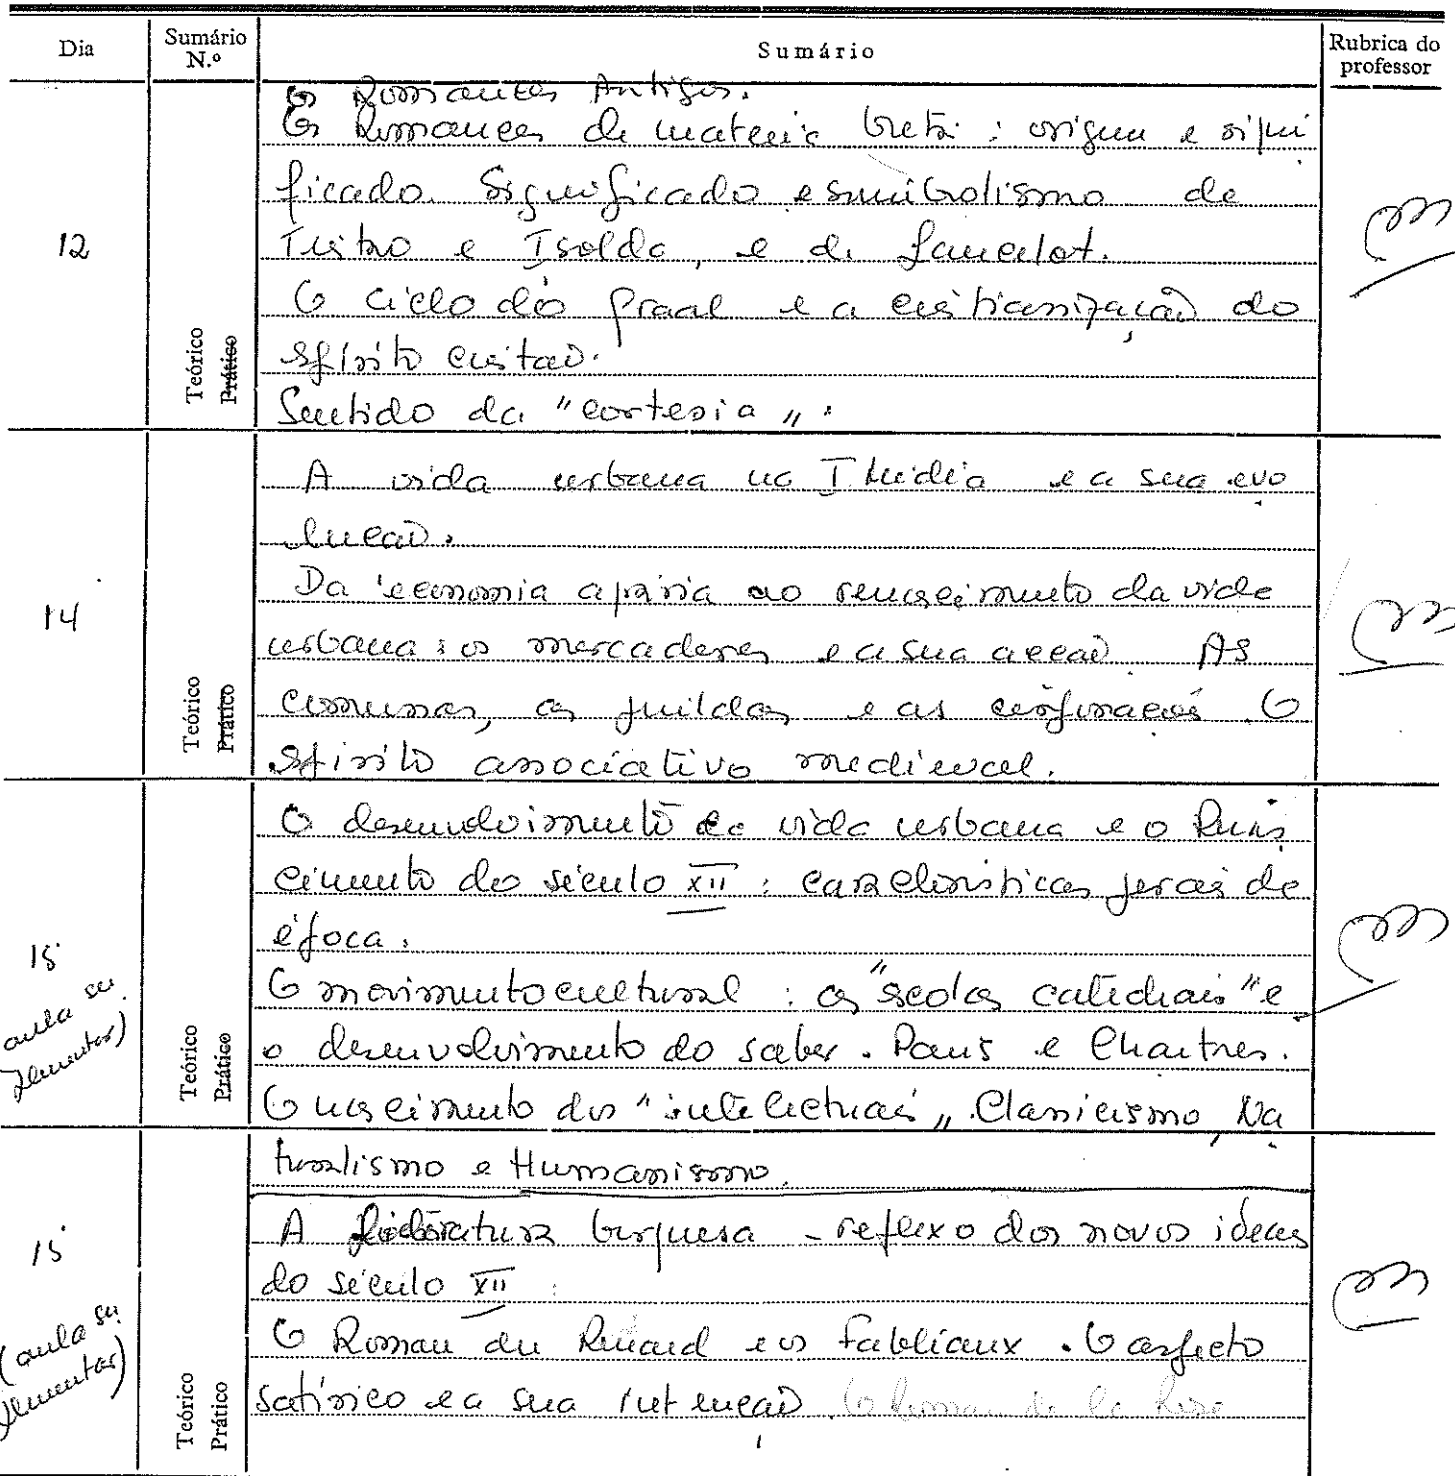 Dia
Sumário N.º
Sumário
Rubrica do professor
Os Romances Antigos.
Os Romances de matéria bretã: origem e signi
ficado. Significado e simbolismo de
Tristão e Isolda, e de Lancelot.
O ciclo do graal e a cristianização do
espírito cristão.
Sentido da "cortesia".
12
Teórico
Prático
A vida urbana na I. Média e a sua evo
lução.
Da economia agrária ao renascimento da vida
urbana: os mercadores e a sua acção. As
comunas, as guildas e as corporações. O
espírito associativo medieval.
14
Teórico
Prático
O desenvolvimento da vida urbana e o Renas
cimento do século XII: características gerais da
época.
O movimento cultural: as "escolas catedrais" e
o desenvolvimento do saber. Paris e Chartres.
O nascimento dos "intelectuais". Classicismo, Na
15
aula su
plementar)
Teórico
Prático
turalismo e Humanismo.
A literatura burguesa - reflexo dos novos ideais
do século XII
O Roman du Renard e os Fabliaux. O aspecto
satírico e a sua intenção. O Roman de la Rose
15
(aula su
plementar)
Teórico
Prático